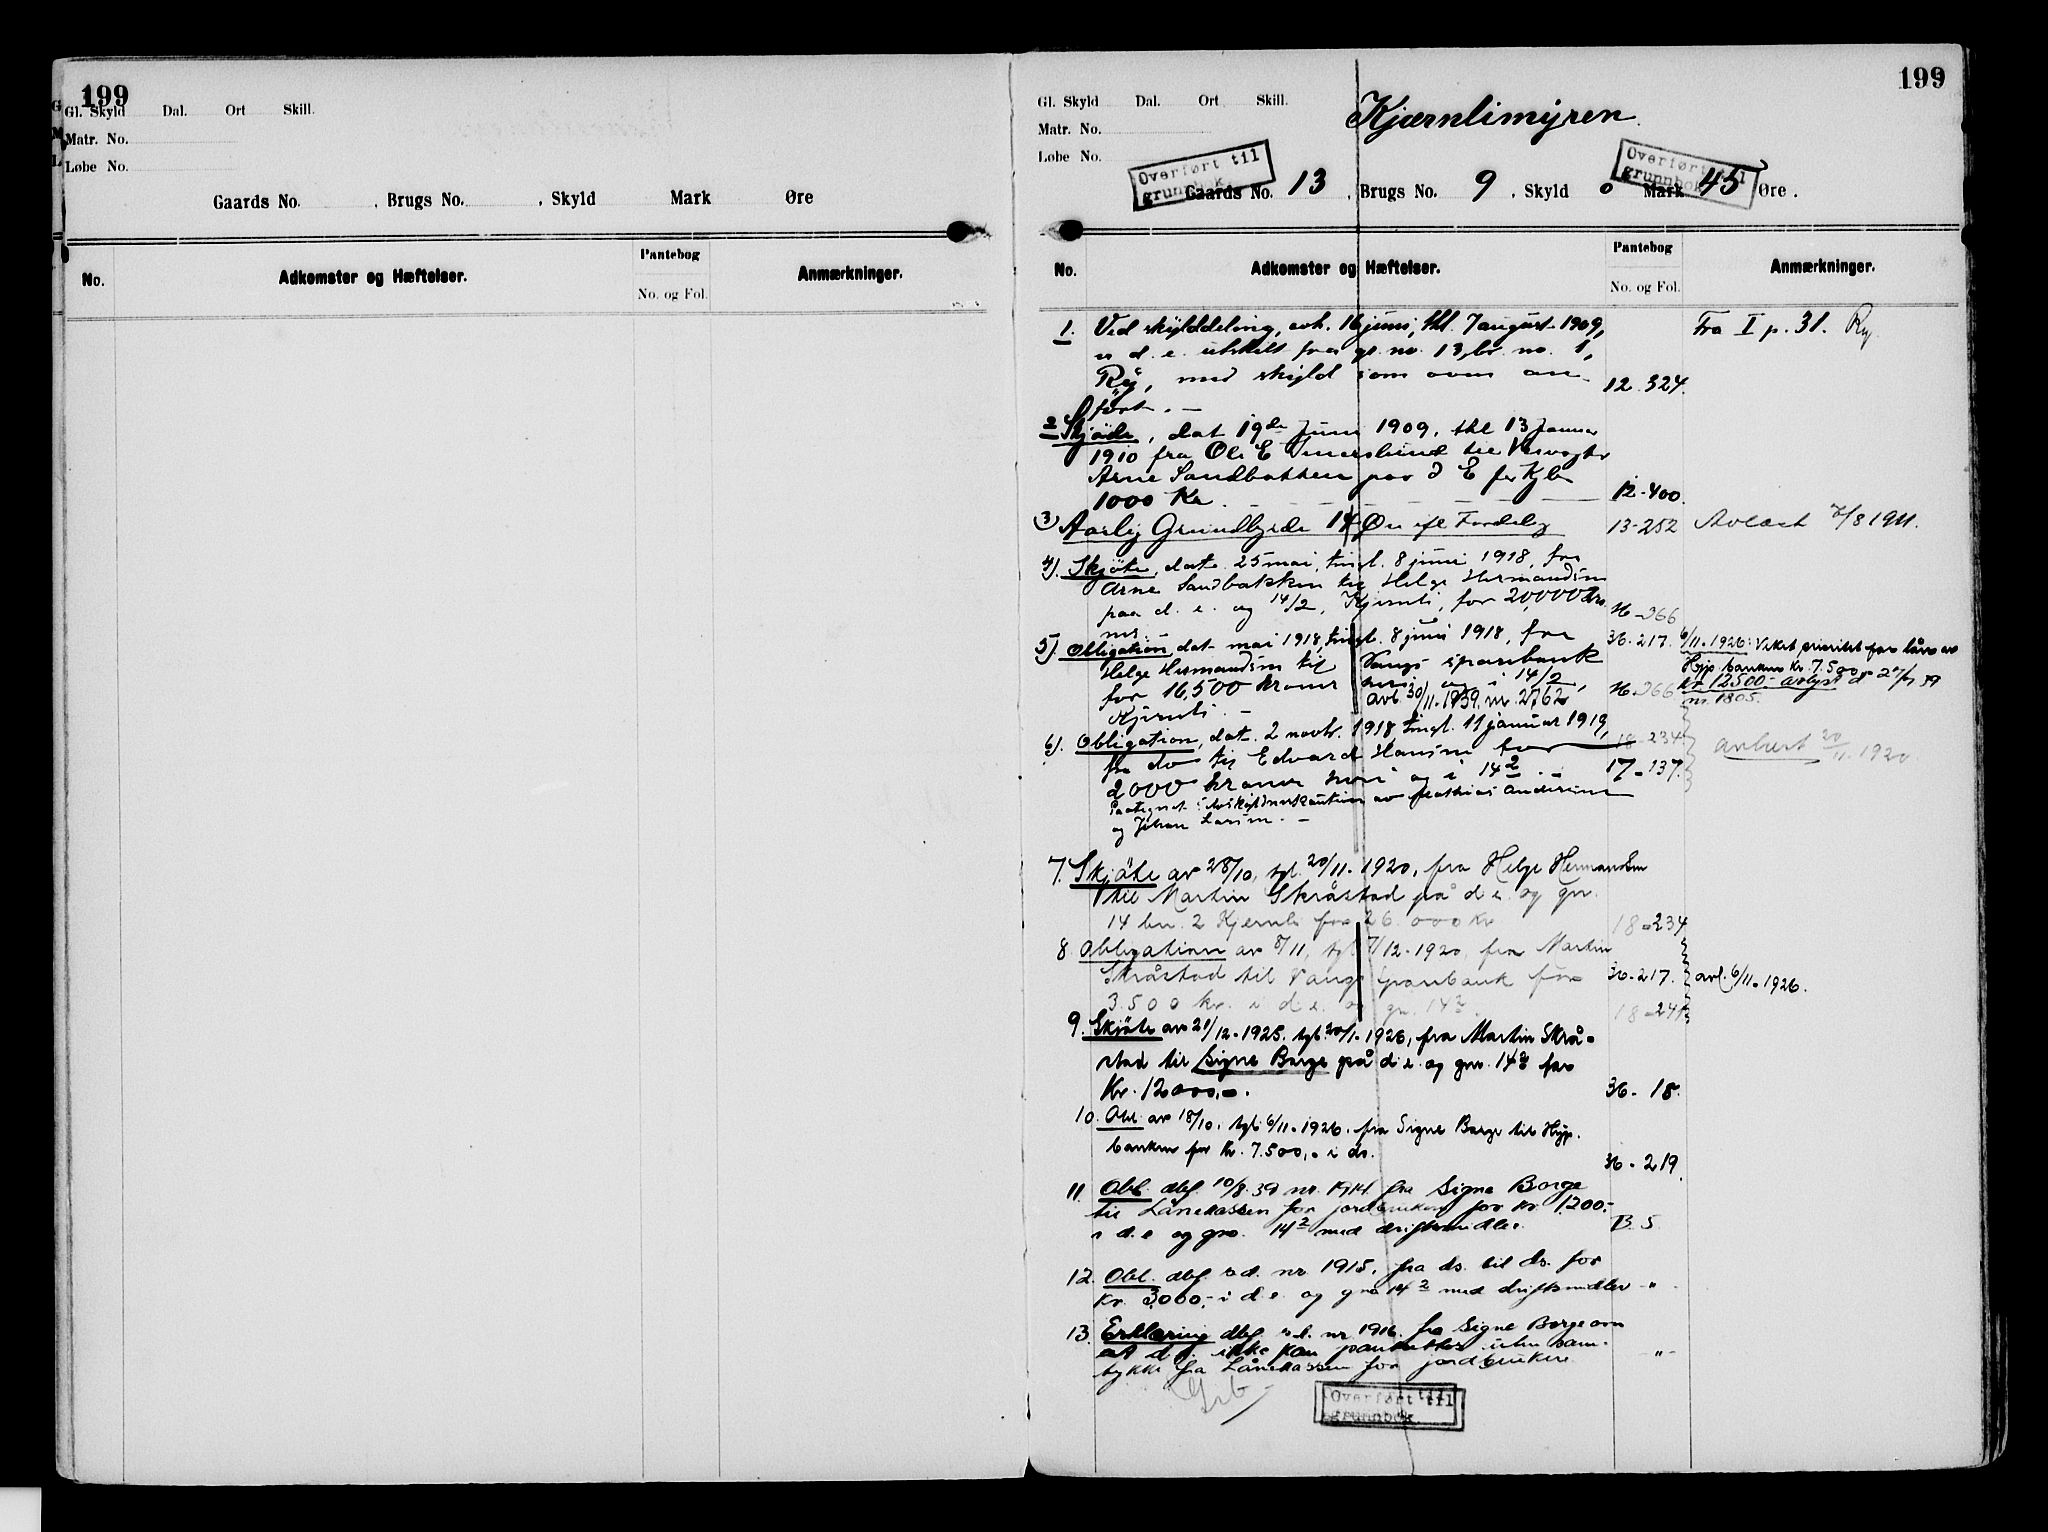 199
Gl. Skyld Dal. Ort Skill.
Matr. No.
Løbe No.
Gaards No. , Brugs No. , Skyld Mark Øre
No. Adkomster og Hæftelser. Pantebog No. og Fol. Anmærkninger.
199
Gl. Skyld Dal. Ort Skill.
Matr. No.
Løbe No.
Kjærnlimyren.
Overført til grunnbok
Overført til grunnbok
Gaards No. 13 , Brugs No. 9 . Skyld 0 Mark 45 Øre .
No. Adkomster og Hæftelser. Pantebog No. og Fol. Anmærkninger.
1. Ved skylddeling, avh. 16 juni, thl. 7 august 1909, Fra I p. 31. Ry.
er d. e. utskilt fra gr. no. 13, br. no. 1,
Ry, med skyld som oven an- 12.324.
ført. -
2 Skjøde, dat 19de Juni 1909, thl 13 Januar
1910 fra Ole E til
Arne Sandbakken paa d E for Kjb
1000 Kr. 12-400.
3) Aarlig Grundbyrde 14 Øre ifl Fordeling 13-252 Avløst 7/8 1911.
4). Skjøte, dat. 25 mai, tingl. 8 juni 1918, fra
Arne Sandbakken til Helge Hermandsen
paa d. e. og 14/2, Kjernli, for 20,000 kro
ner. - 16-366
5). Obligation, dat. mai 1918, tingl. 8 juni 1918, fra 36-217. 6/11-1926: Veket prioritet for lån av
Helge Hermandsen til Vangs sparebank Hyp. banken Kr. 7.500
for 16,500 kroner heri og i 14/2, 16-366 Kr 12500- avlyst
Kjernli. - avl. 30/11-1939. nr. 2762 nr. 1805.
6). Obligation, dat. 2 novbr. 1918, tingl. 11 januar 1919, 18-234.
fra do til Edvard Hansen for 17-137. avlæst 20/11 1920
2000 kroner heri og i 14 2. -
Paategnet: selvskyldnerkaution av Mathias Andersen
og Johan Larsen. -
7. Skjöte av 28/10, tgl. 20/11-1920, fra Helge Hermandsen
til Martin Skråstad på d.e. og gnr.
14 bn. 2 Kjernli for 26.000 kr 18-234
8 Obligation av 8/11, tgl 7/12-1920, fra Martin
Skråstad til Vangs Sparebank for 36-217. avl. 6/11-1926.
3.500 kr. i d.e. og gn. 14 2. 18-241
9. Skjöte av 21/12-1925. tgl. 20/1-1926, fra Martin Skrå-
stad til Signe Borge på d.e. og gnr. 14 2 for
Kr. 12000,-. 36-18.
10. Obl. av 18/10, tgl. 6/11-1926. fra Signe Borge til Hyp.
banken for Kr. 7.500,- i ds. 36-219.
11. Obl. dbf. 10/8.39 nr. 1914 fra Signe Borge
til Lånekassen for jordbrukere for kr. 1200.-
i d.e og gnr. 14 2 med driftsmidler. B. 5.
12. Obl. dbf. s.d. nr. 1915, fra ds. til ds. for
Kr. 3000,- i d.e. og gnr 14 2 med driftsmidler - " -
13. Erklæring dbf s.d. nr. 1916. fra Signe Borge om
at d.e. ikke kan pantsettes uten sam-
tykke fra Lånekassen for jordbrukere. - " -
Grb
Overført til grunnbok